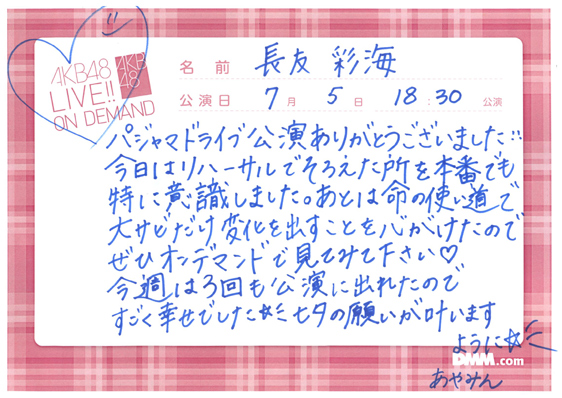 AKB48
LIVE!!
ON DEMAND
AKB
48
名前 長友 彩海
公演日 7月 5日 18:30 公演
パジャマドライブ公演ありがとうございました
今日はリハーサルでそろえた所を本番でも
特に意識しました。あとは命の使い道で
大サビだけ変化を出すことを心がけたので
ぜひオンデマンドで見てみて下さい♡
今週は3回も公演に出れたので
すごく幸せでした☆彡七夕の願いが叶います
ように☆彡
DMM.com
あやみん